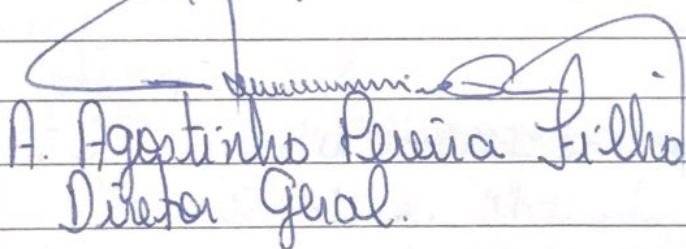 A. Agostinho Pereira Filho
Diretor Geral.